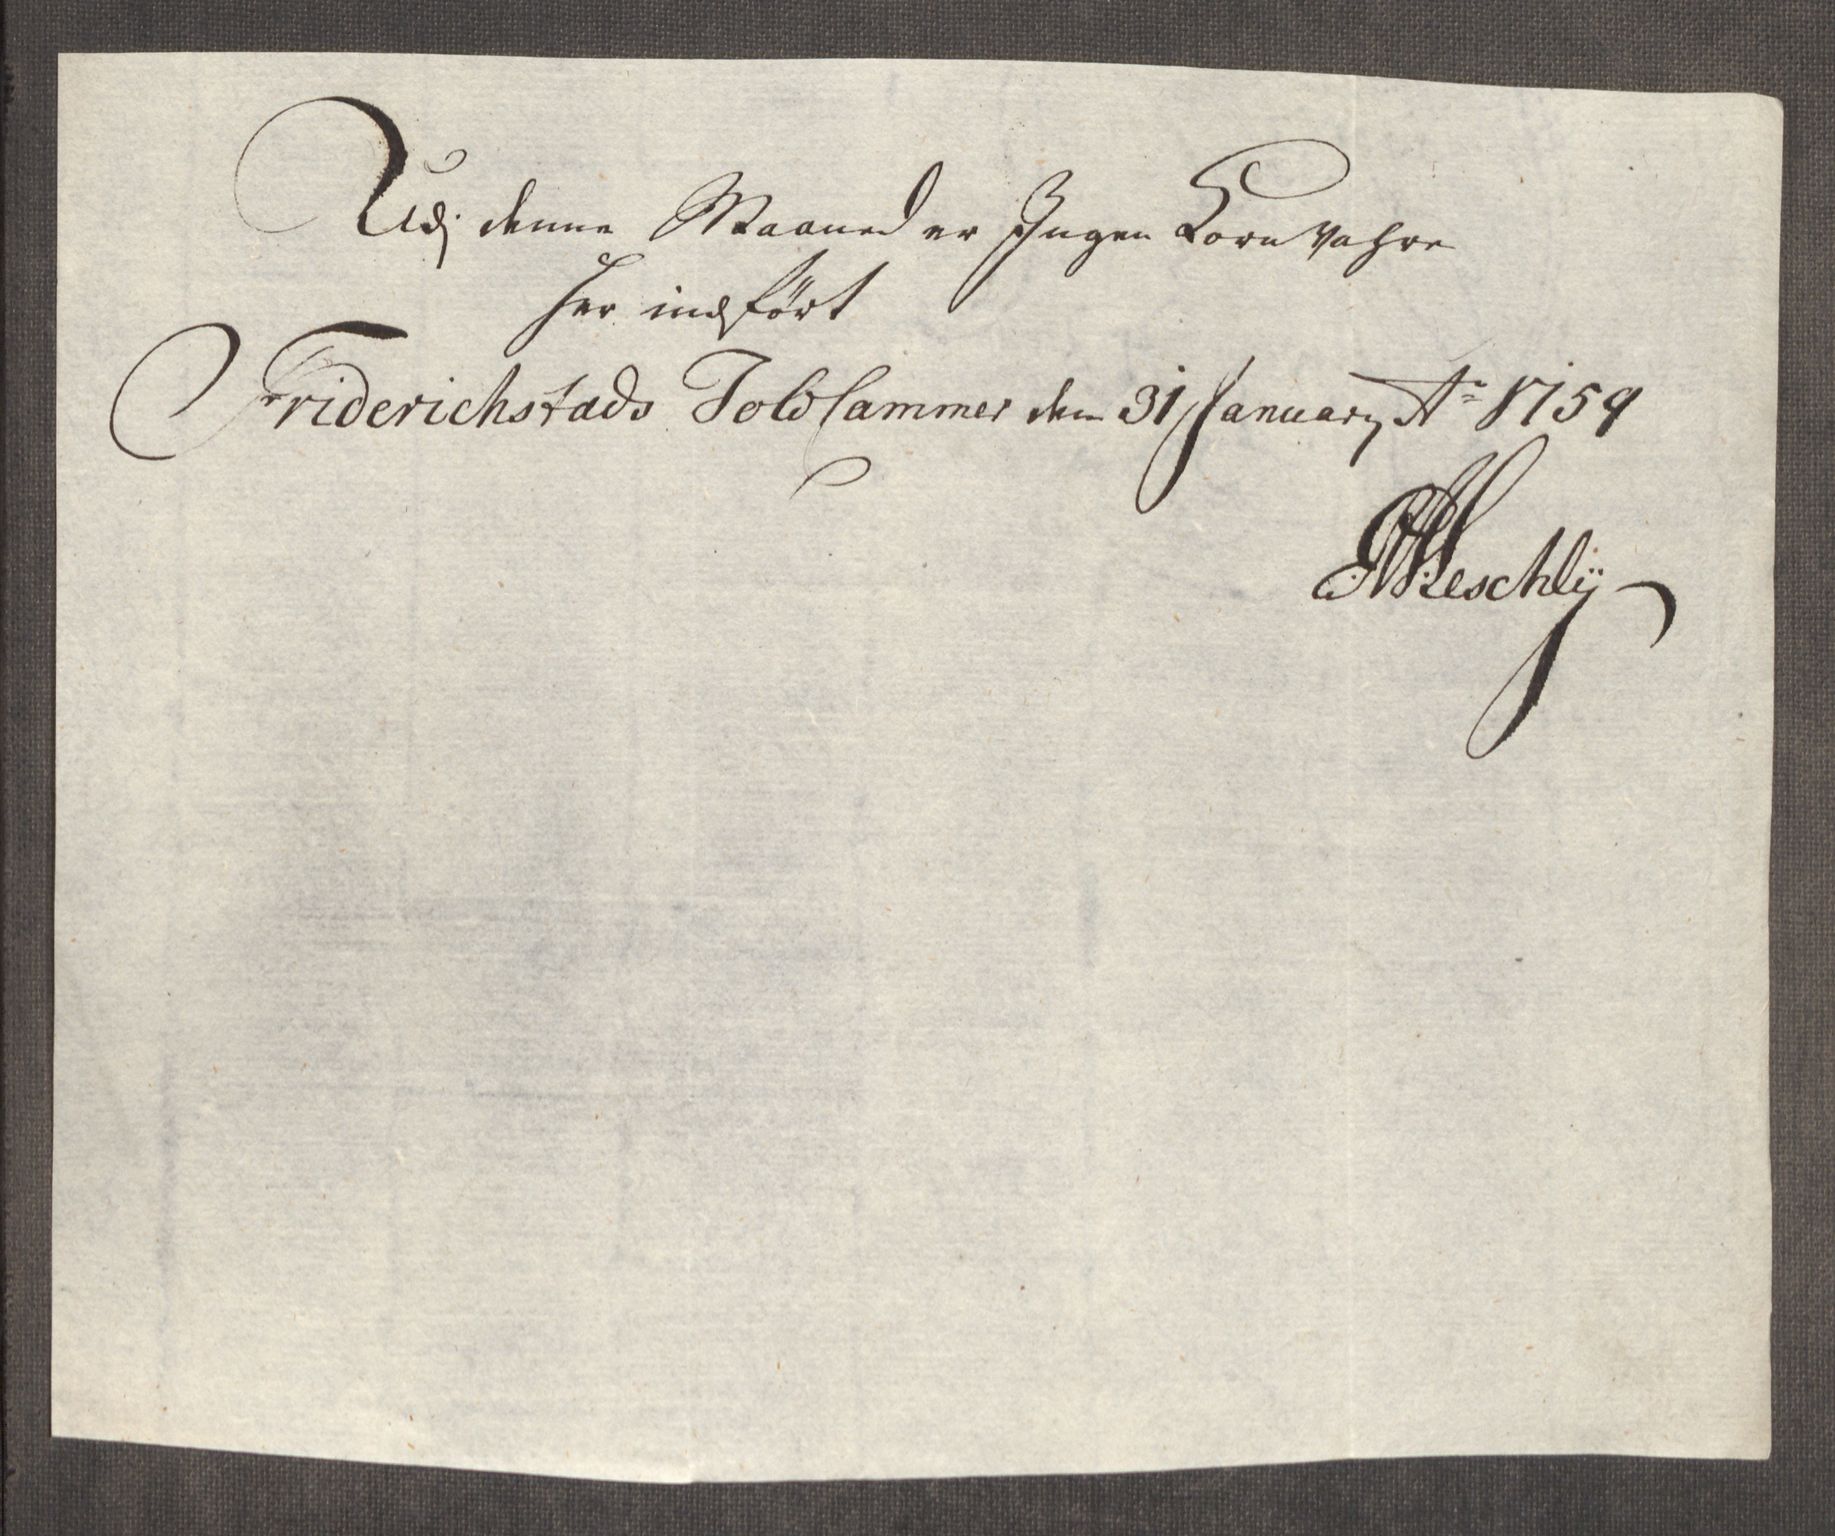 Udj denne Maaned er Ingen Korn Vahre
her indført
Friderichstads Told Cammer den 31 January Ao 1759